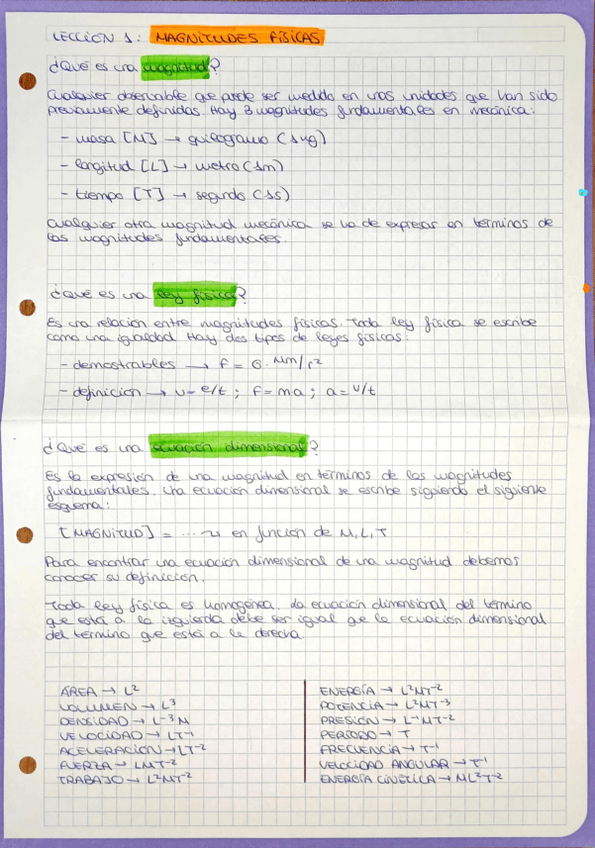 LECCIÓN 1: MAGNITUDES FÍSICAS
¿Qué es una magnitud?
Cualquier observable que puede ser medido en unas unidades que han sido
previamente definidas. Hay 3 magnitudes fundamentales en mecánica:
- masa [M] → quilogramo (1kg)
- longitud [L] → metro (1m)
- tiempo [T] → segundo (1s)
Cualquier otra magnitud mecánica se ha de expresar en términos de
las magnitudes fundamentales.
¿Qué es una ley física?
Es una relación entre magnitudes físicas. Toda ley física se escribe
como una igualdad. Hay dos tipos de leyes físicas:
- demostrables → F = G · Mm/r²
- definición → v = e/t ; F = ma ; a = v/t
¿Qué es una ecuación dimensional?
Es la expresión de una magnitud en términos de las magnitudes
fundamentales. Una ecuación dimensional se escribe siguiendo el siguiente
esquema:
[MAGNITUD] = ... en función de M, L, T
Para encontrar una ecuación dimensional de una magnitud debemos
conocer su definición.
Toda ley física es homogénea. La ecuación dimensional del término
que está a la izquierda debe ser igual que la ecuación dimensional
del término que está a la derecha.
ÁREA → L²
VOLUMEN → L³
DENSIDAD → L⁻³M
VELOCIDAD → LT⁻¹
ACELERACIÓN → LT⁻²
FUERZA → LMT⁻²
TRABAJO → L²MT⁻²
ENERGÍA → L²MT⁻²
POTENCIA → L²MT⁻³
PRESIÓN → L⁻¹MT⁻²
PERÍODO → T
FRECUENCIA → T⁻¹
VELOCIDAD ANGULAR → T⁻¹
ENERGÍA CINÉTICA → ML²T⁻²